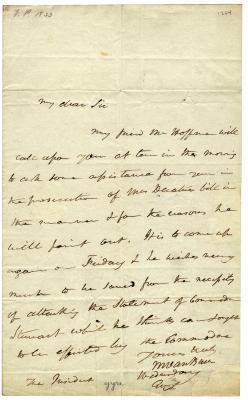 1829
1264
My dear Sir
My friend Mr Hoffman will
call upon you at ten in the morning
to ask some assistance from you in
the prosecution of Mrs Decatur bill in
the manner & for the reasons he
will point out. It is to come up
again on Friday & he wishes very
much to be saved from the necessity
of attacking the Statement of Commodore
Stewart which he thinks can
to be effected by the Commodore
Yours truly
M Van Buren
Wednesday
The President